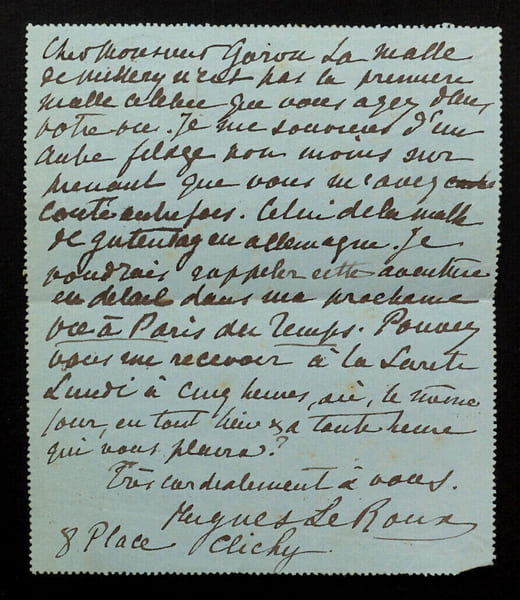 Cher Monsieur Goron La malle
de Millery n'est pas la premiere
malle celebre que vous ayez dans
votre vie. Je me souviens d'un
autre filage non moins sur
prenant que vous m'avez
conté autrefois. Celui de la malle
de gutentag en allemagne. Je
voudrais rappeler cette aventure
en detail dans ma prochaine
vie à Paris du Temps. Pouvez
vous me recevoir à la Sureté
Lundi à cinq heures, ou, le même
jour, en tout lieu & a toute heure
qui vous plaira?
Très cordialement à vous.
Hugues Le Roux
8 Place Clichy